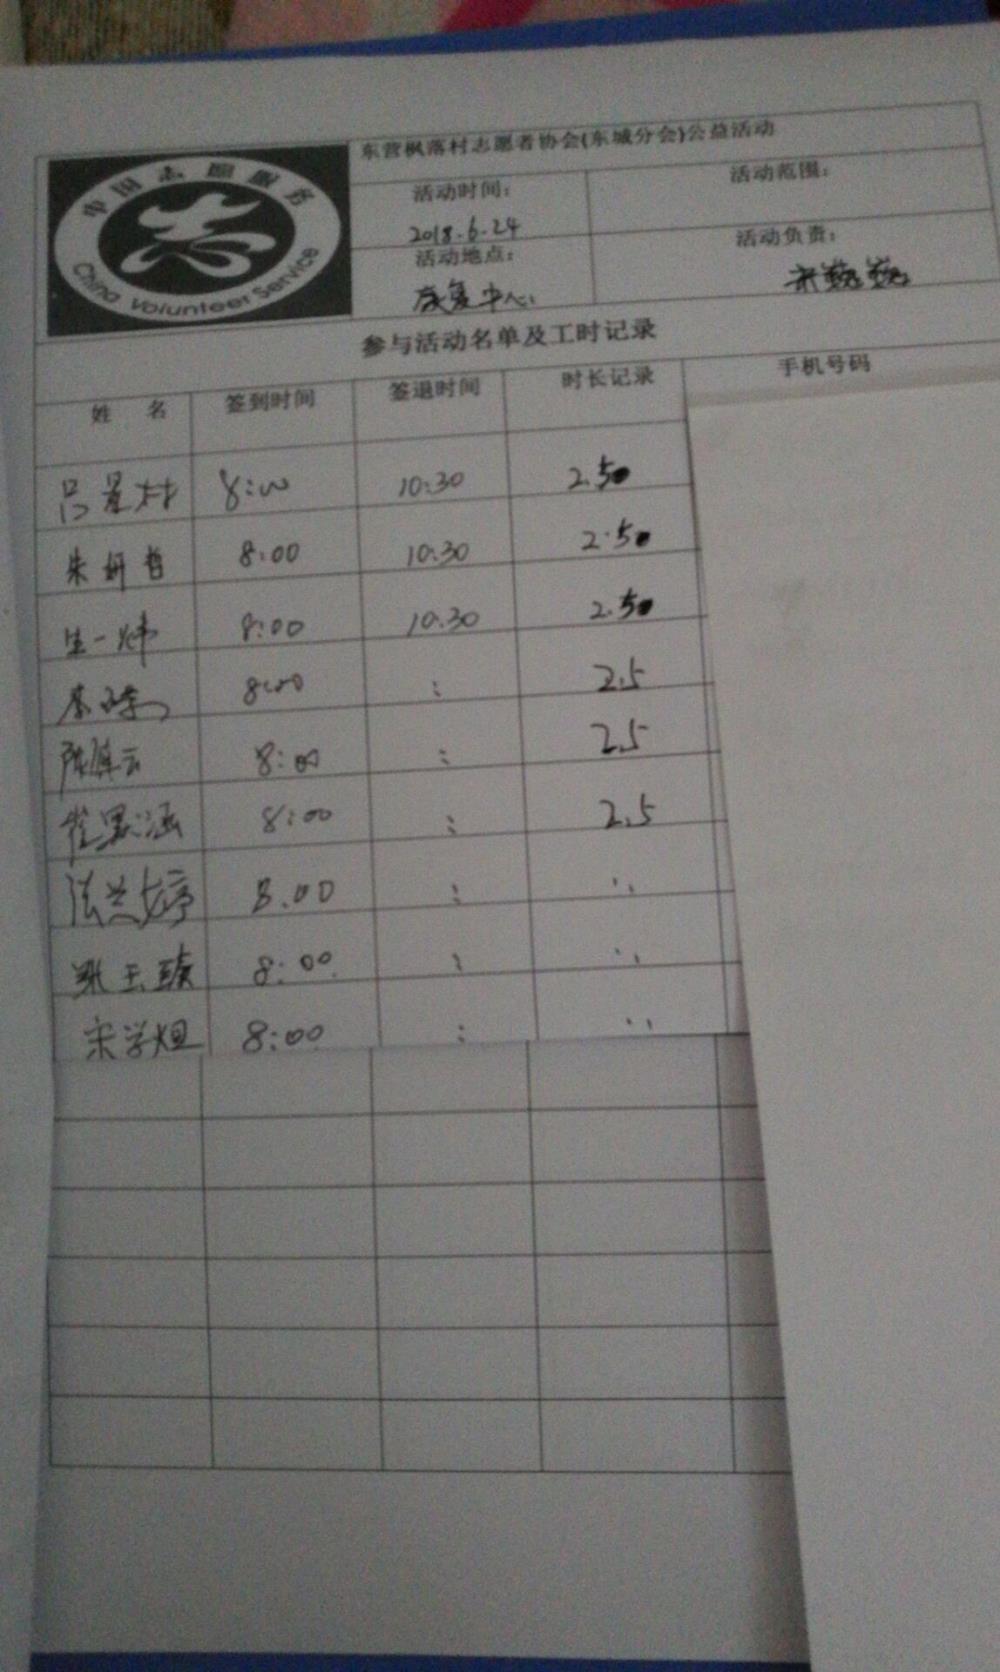 中国志愿服务
China Volunteer Service
东营枫落村志愿者协会(东城分会)公益活动
活动时间： 活动范围：
2018.6.24
活动地点： 活动负责：
康复中心 巍巍
参与活动名单及工时记录
姓 名 签到时间 签退时间 时长记录 手机号码
吕景 8:00 10:30 2.50
朱妍哲 8:00 10:30 2.50
生一炜 8:00 10:30 2.50
8:00 : 2.5
陈麒云 8:00 : 2.5
崔墨涵 8:00 : 2.5
8.00 : ∵
张玉臻 8:00 : ∵
宋学烜 8:00 : ∵